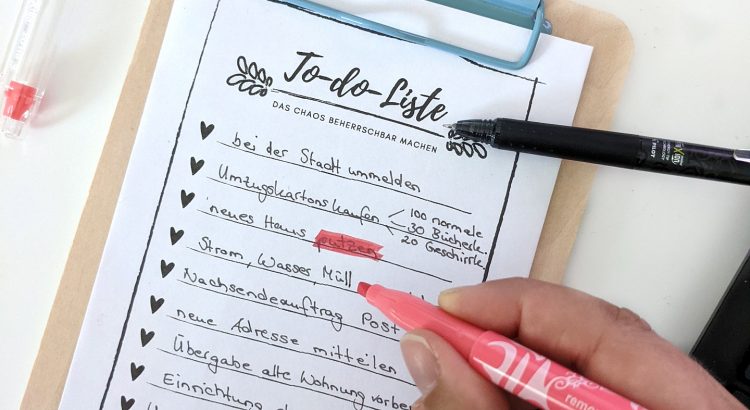 To-do-Liste
DAS CHAOS BEHERRSCHBAR MACHEN
bei der Stadt ummelden
Umzugskartons kaufen
100 normale
30 Bücherk.
20 Geschirrk.
neues Haus putzen
Strom, Wasser, Müll
Nachsendeauftrag Post
neue Adresse mitteilen
Übergabe alte Wohnung
Einrichtung
PILOT